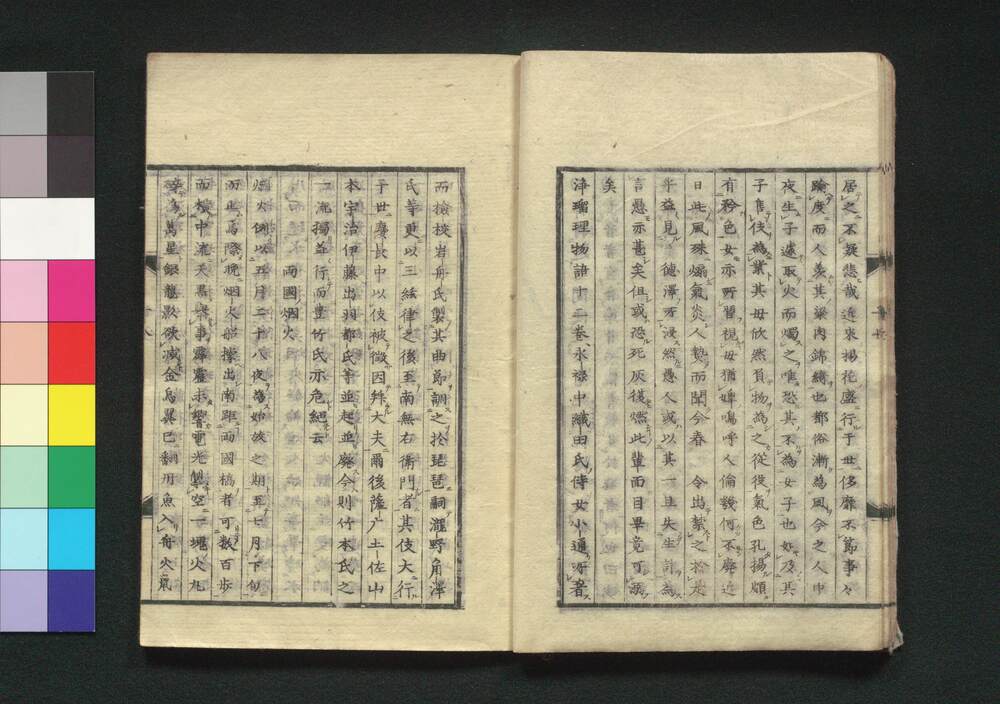 居之不疑悲哉近來揚花盛行于世侈靡不節事々
踰度而人羨其粱肉錦繡也都俗漸為風今之人中
夜生子遽取火而燭之唯恐其不為女子也如及其
子售伎為業其母欣然負物為之從後氣色孔揚頗
有矜色女亦所習視母猶婢嗚呼人倫幾何不廢近
日此風殊煽氣炎人艶而聞今春 令出禁之於是
乎益見 德澤所浸然愚人或以其一旦失生計為
言愚亦甚矣但或恐死灰復燃此輩面目畢竟可惡
矣
淨瑠理物語十二卷永祿中織田氏侍女小通所著
而撿挍岩舟氏製其曲節調之於琵琶詞瀧野角澤
氏等更以三絃律之後至南無右衞門者其伎大行
于世慶長中以伎被徵因拜大夫爾後薩广土佐山
本宇治伊藤出羽都氏等並起並廢今則竹本氏之
一流獨益行而豊竹氏亦危絕云
兩國烟火
烟火例以五月二十八夜為始放之期至七月下旬
而止焉際晚烟火船撑出南距兩國橋者可數百步
而橫中流天黑舉事霹靂未響電光掣空一塊火丸
碎為萬星銀龍影欲滅金烏翼已翻丹魚入舟火鼠